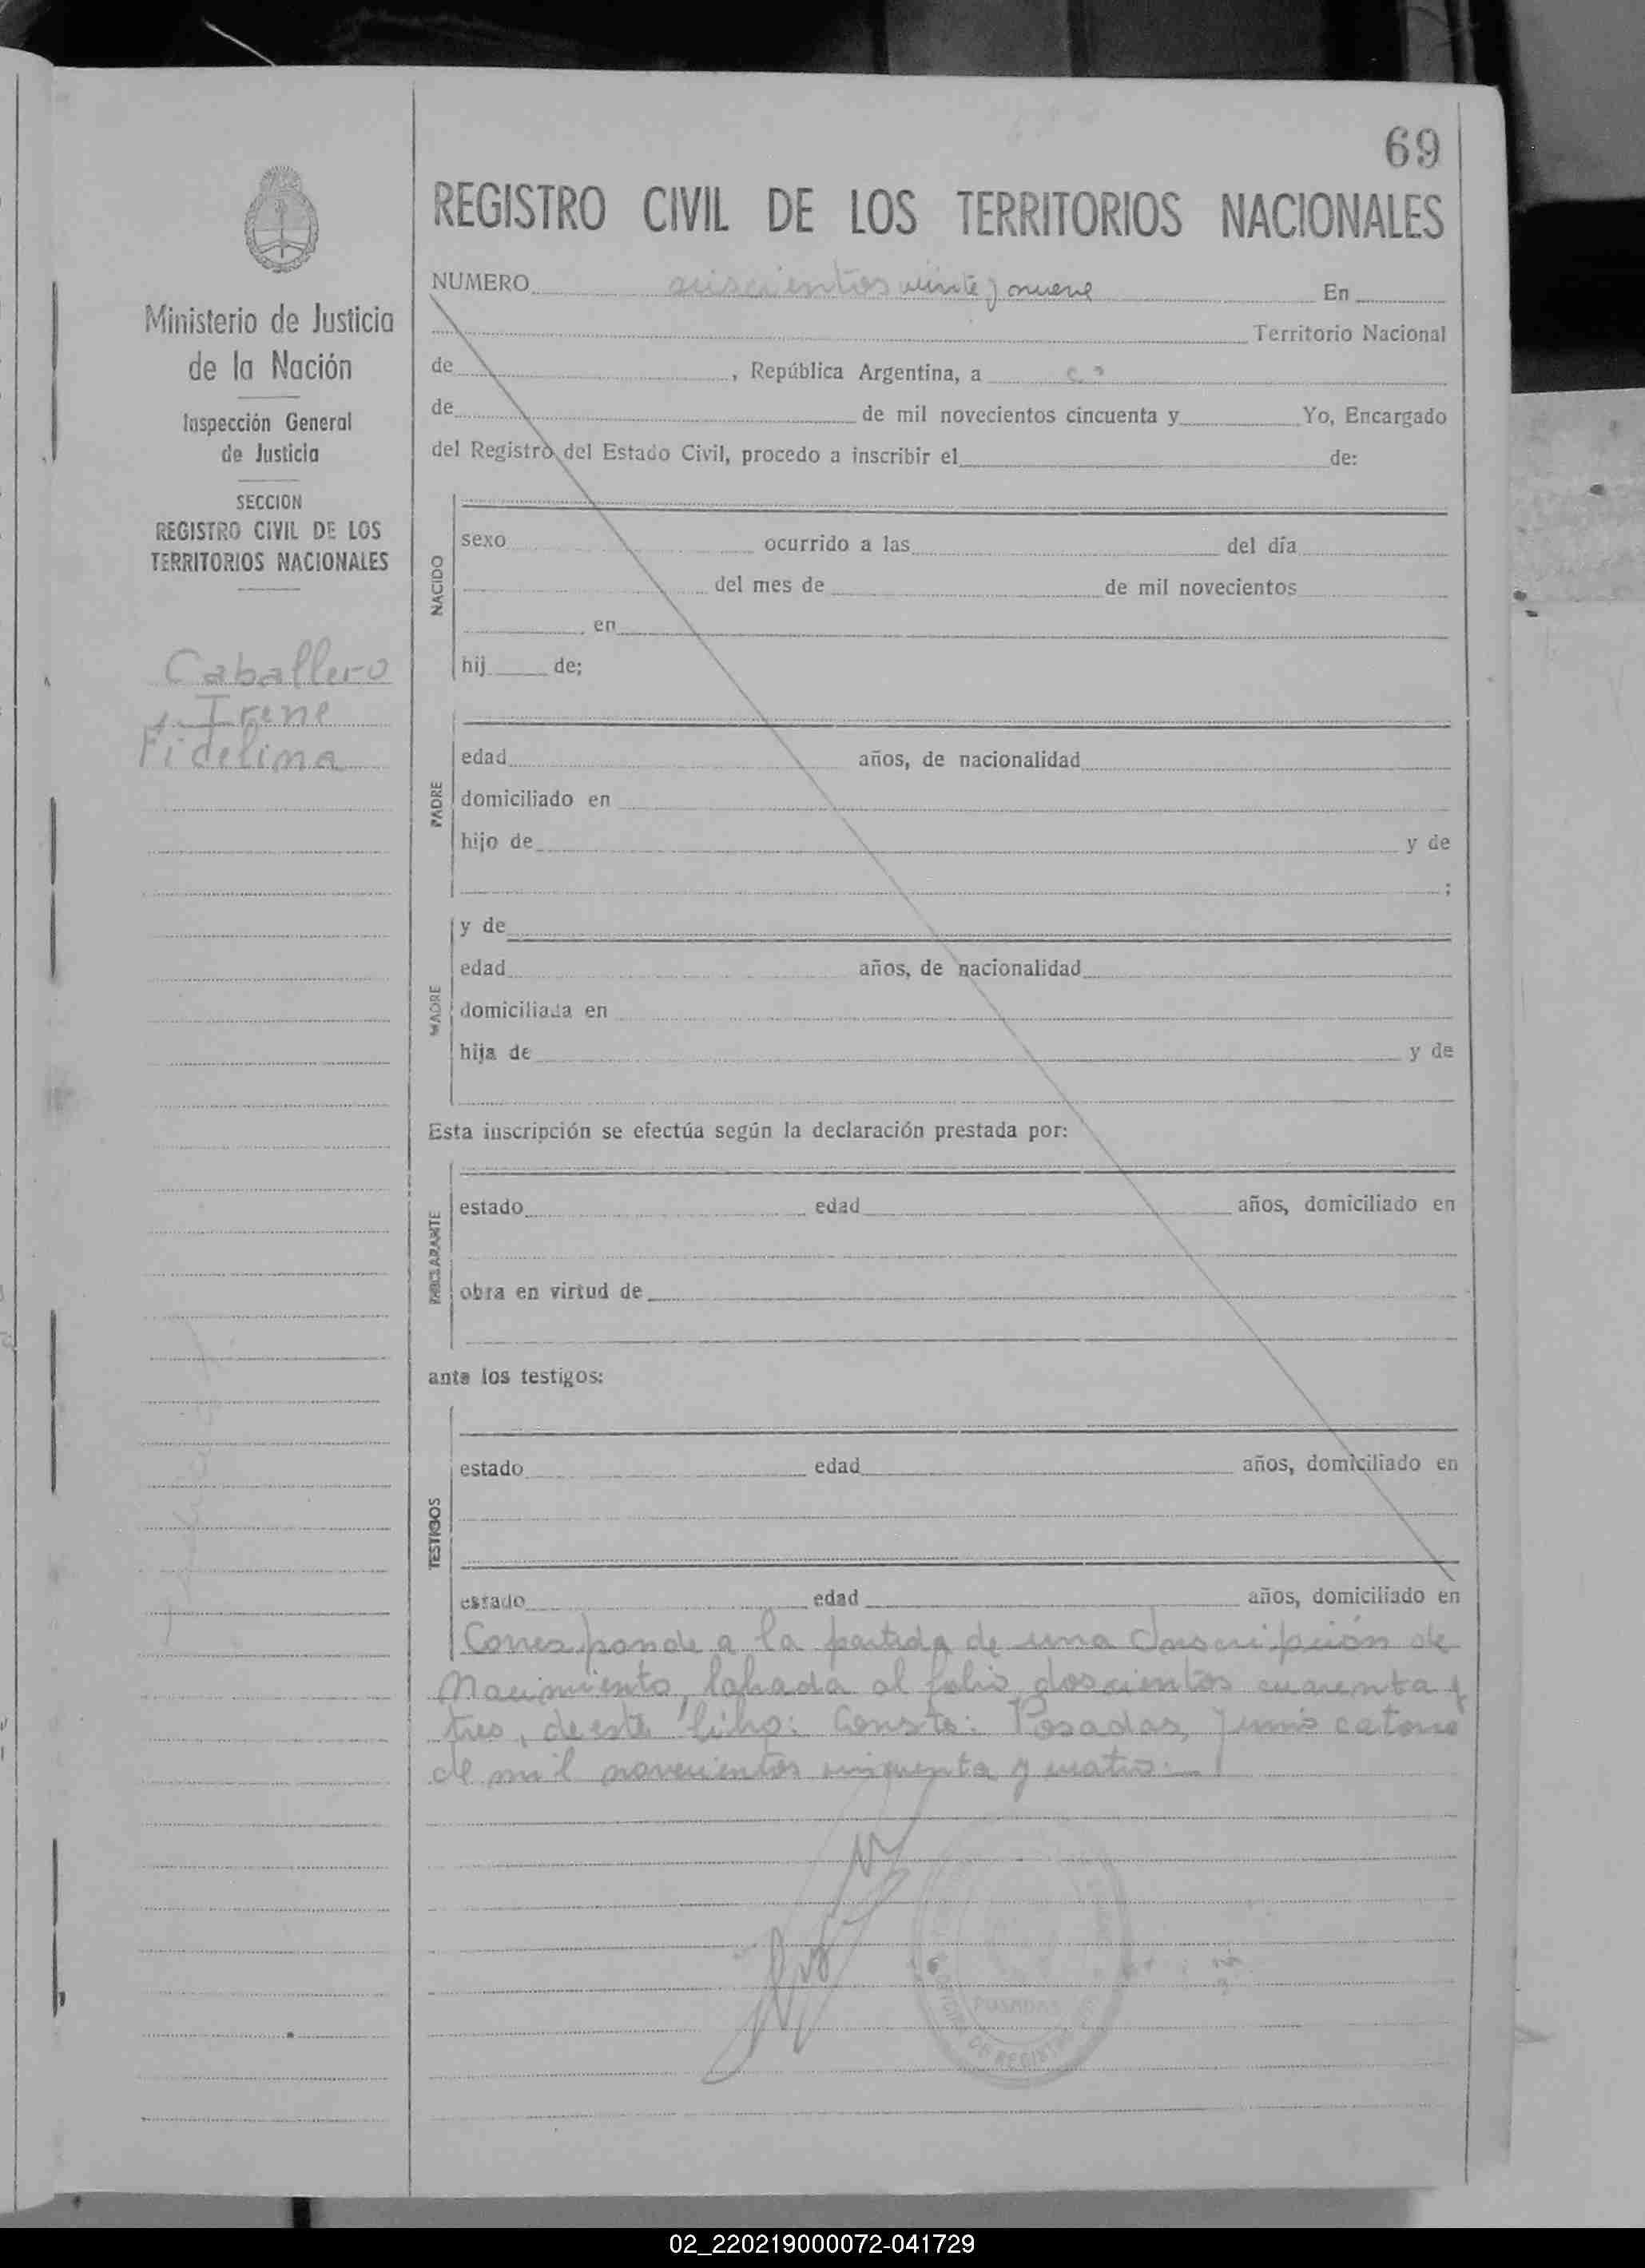 69
REGISTRO CIVIL DE LOS TERRITORIOS NACIONALES
NUMERO seiscientos veinte y nueve En
Territorio Nacional
de , República Argentina, a
de de mil novecientos cincuenta y Yo, Encargado
del Registro del Estado Civil, procedo a inscribir el de:
Ministerio de Justicia
de la Nación
Inspección General
de Justicia
SECCION
REGISTRO CIVIL DE LOS
TERRITORIOS NACIONALES
Caballero
Irene
Fidelina
NACIDO
sexo ocurrido a las del día
del mes de de mil novecientos
en
hij de;
PADRE
edad años, de nacionalidad
domiciliado en
hijo de y de
;
MADRE
y de
edad años, de nacionalidad
domiciliada en
hija de y de
Esta inscripción se efectúa según la declaración prestada por:
estado edad años, domiciliado en
obra en virtud de
ante los testigos:
TESTIGOS
estado edad años, domiciliado en
estado edad años, domiciliado en
Corresponde a la partida de una Inscripción de
Nacimiento, labrada al folio doscientos cuarenta y
tres, de este libro: Conste: Posadas, Junio catorce
de mil novecientos cincuenta y cuatro.—
POSADAS
DE REGIST
02_220219000072-041729